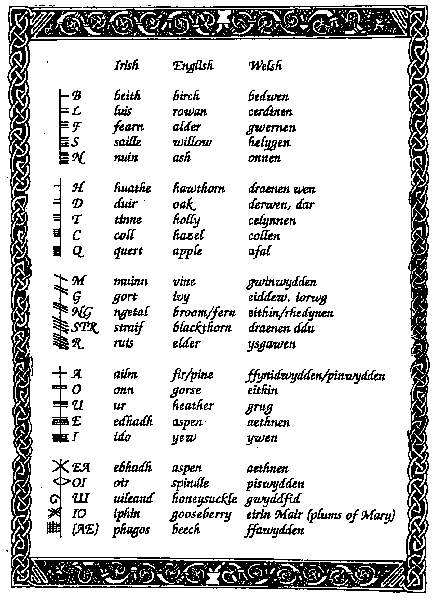 Irish English Welsh
B beith birch bedwen
L luis rowan cerdinen
F fearn alder gwernen
S saille willow helygen
N nuin ash onnen
H huathe hawthorn draenen wen
D duir oak derwen, dar
T tinne holly celynnen
C coll hazel collen
Q quert apple afal
M muinn vine gwinwydden
G gort ivy eiddew, iorwg
NG ngetal broom/fern eithin/rhedynen
STR straif blackthorn draenen ddu
R ruis elder ysgawen
A ailm fir/pine ffynidwydden/pinwydden
O onn gorse eithin
U ur heather grug
E edhadh aspen aethnen
I ido yew ywen
EA ebhadh aspen aethnen
OI oir spindle piswydden
UI uileand honeysuckle gwyddfid
IO iphin gooseberry eirin Mair (plums of Mary)
(AE) phagos beech ffawydden